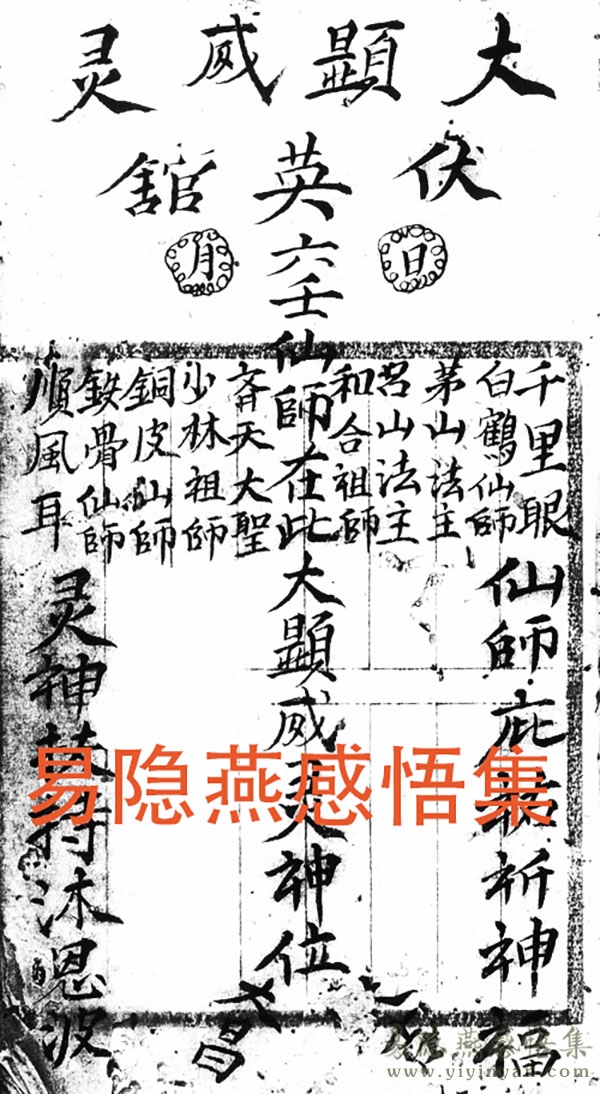 大顯威灵
伏英舘
日 月
千里眼
白鶴仙師
茅山法主
吕山法主
和合祖師
六壬仙師在此大顯威灵神位
斉天大聖
少林祖師
銅皮仙師
骨仙師
順風耳
仙師庇祈神福
灵神持沐恩波
昌
易隐燕感悟集
易隐燕感悟集
www.yiyinyan.com